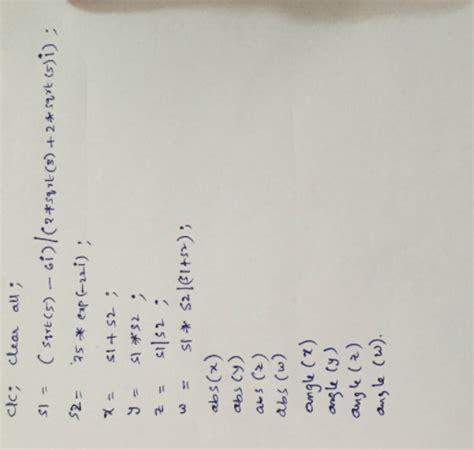 clc; clear all;
s1 = (sqrt(5) - 6i)/(2*sqrt(3)+2*sqrt(5)i);
s2 = 35 * exp(-22i);
x = s1+s2;
y = s1*s2;
z = s1/s2;
w = s1 * s2/(s1+s2);
abs(x)
abs(y)
abs(z)
abs(w)
angle(x)
angle(y)
angle(z)
angle(w).